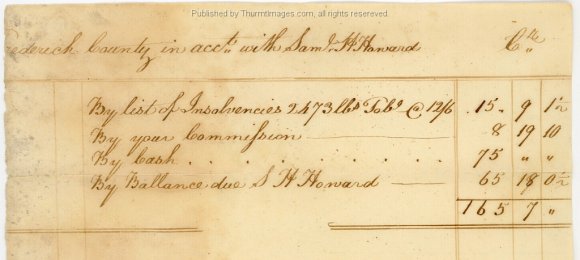 Published by ThurmtImages.com, all rights reserved.
rederick County in acct. with Saml. H Howard Cr.
By list of Insolvencies 2473 lbs Tobo. @ 12/6 15 . 9 1½
By your Commission 8 19 10
By Cash . . . . . . . . 75 " "
By Ballance due S H Howard 65 18 0½
165 7 "